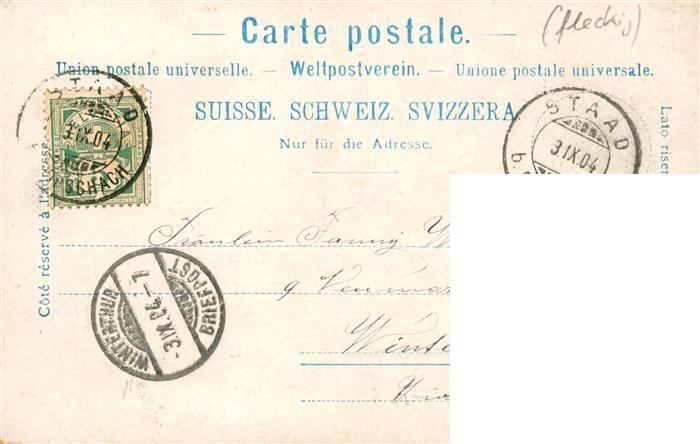 (fleckig)
— Carte postale. —
Union postale universelle. — Weltpostverein. — Unione postale universale.
SUISSE. SCHWEIZ. SVIZZERA
Nur für die Adresse.
Côté réservé à l'adresse.
Lato riser
STAAD
3.IX.04
RSCHACH
STAAD
3.IX.04
b.
Fräulein Fanny W
9 Neumar
Winte
WINTER
-3.IX.04.-7
BRIEFPOST